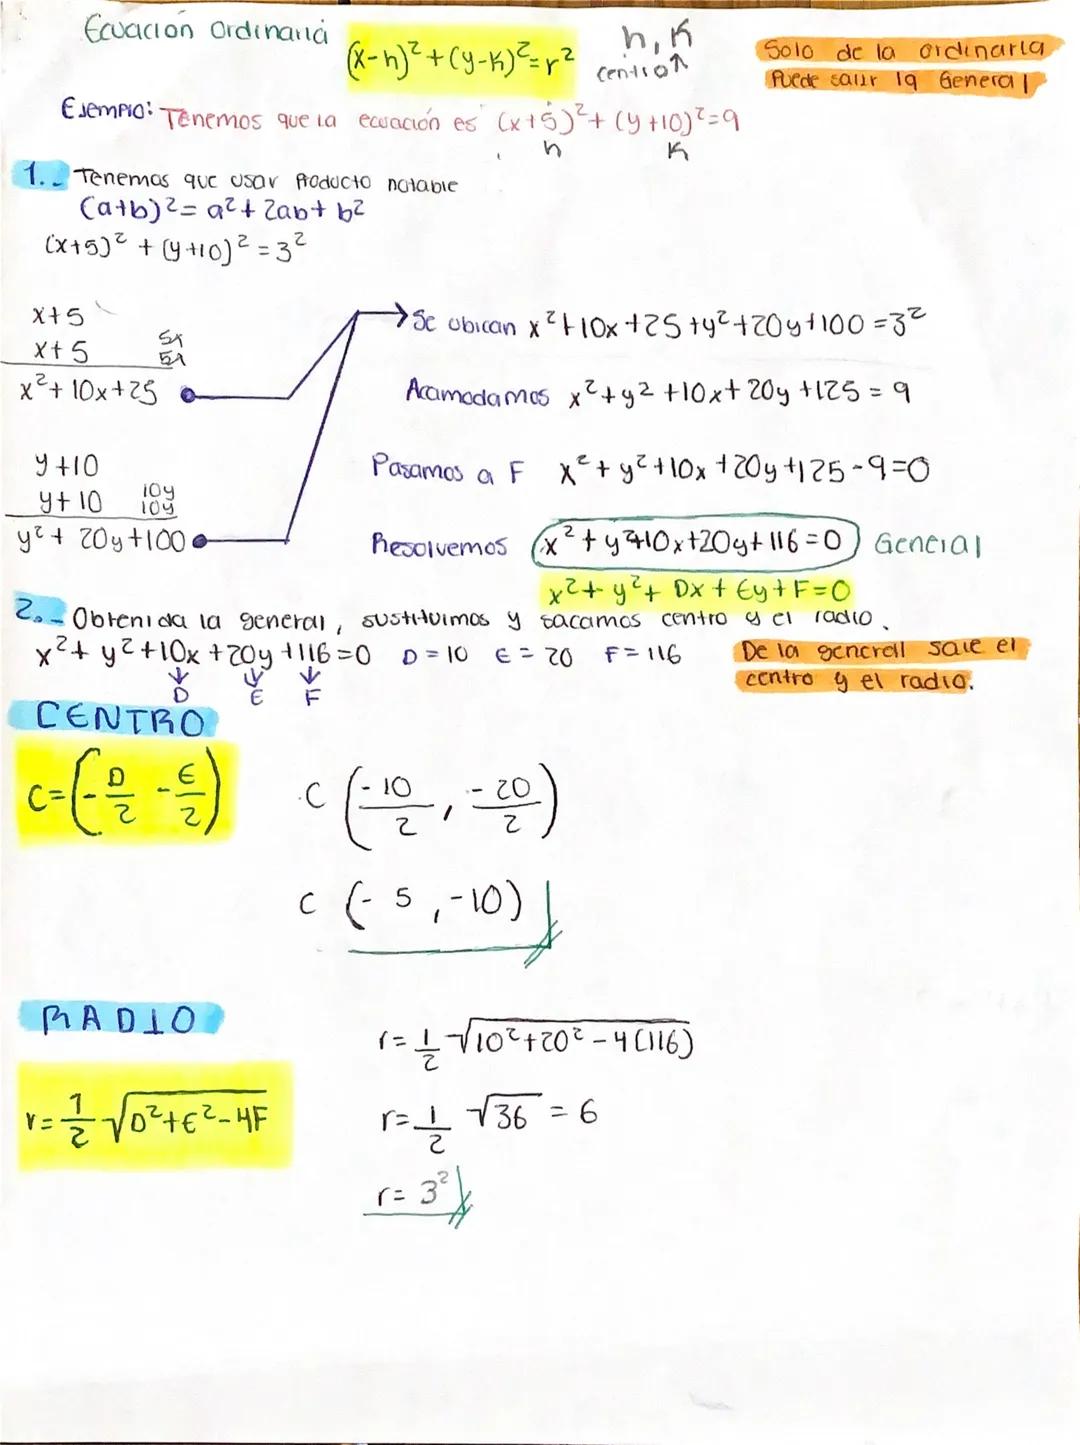 Ecuación Ordinaria
(x-h)²+(y-k)²=r²
h,k
centro↑
Solo de la ordinaria
Puede salir la General
Ejemplo: Tenemos que la ecuación es (x+5)²+(y+10)²=9
h k
1.- Tenemos que usar Producto notable
(a+b)²=a²+2ab+b²
(x+5)²+(y+10)²=3²
x+5
x+5
5x
5x
x²+10x+25
→Se ubican x²+10x+25+y²+20y+100=3²
Acomodamos x²+y²+10x+20y+125=9
y+10
y+10
10y
10y
y²+20y+100
Pasamos a F x²+y²+10x+20y+125-9=0
Resolvemos x²+y²+10x+20y+116=0 General
x²+y²+Dx+Ey+F=0
2.- Obtenida la general, sustituimos y sacamos centro y el radio.
x²+y²+10x+20y+116=0 D=10 E=20 F=116
↓ ↓ ↓
D E F
De la generall sale el
centro y el radio.
CENTRO
C=(-D/2 -E/2)
C (-10/2, -20/2)
C (-5,-10)
RADIO
r=1/2 √D²+E²-4F
r=1/2 √10²+20²-4(116)
r=1/2 √36=6
r=3²